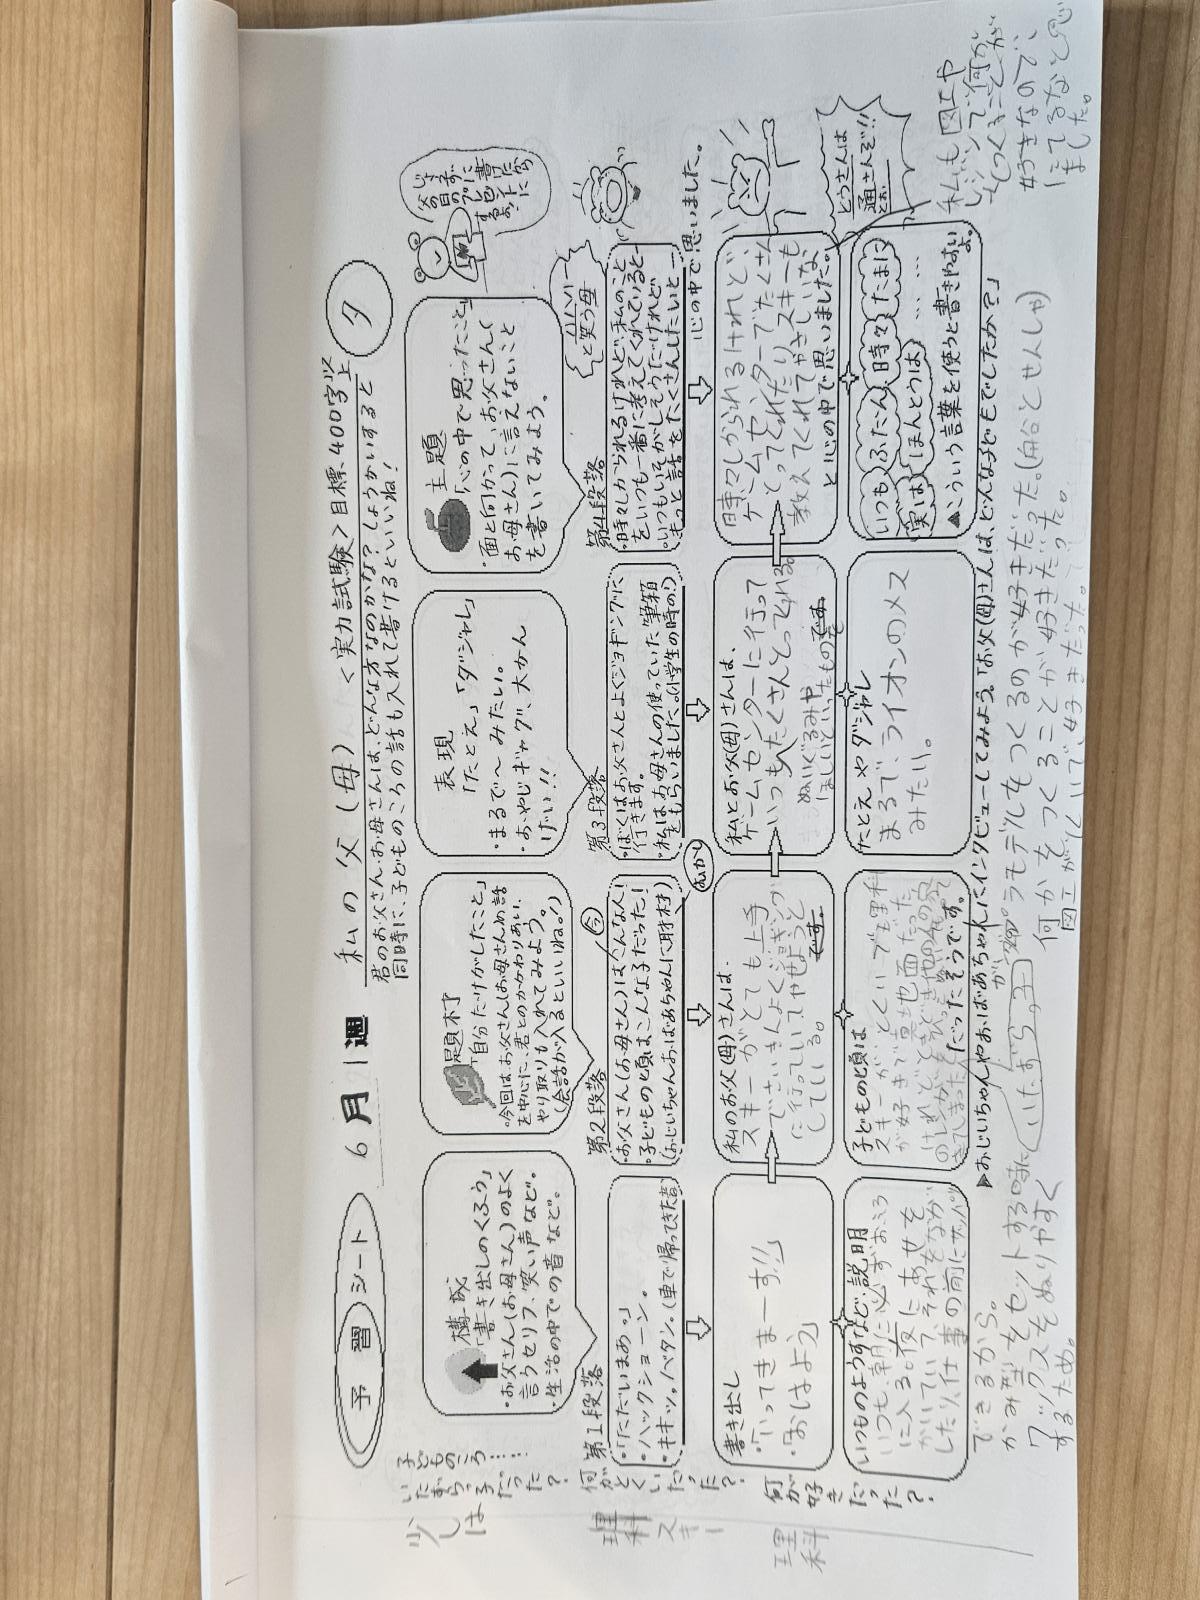 予習シート
6月1週
私の父(母) <実力試験>目標400字以上
夕
君のお父さん・お母さんは、どんな方なのかな?しょうかいすると
同時に、子どものころの話も入れて書けるといいね!
じょうずに書けたら
父の日の
プレゼントに
するぉ
構成
「書き出しのくふう」
・お父さん(お母さん)のよく
言うセリフ、笑い声など。
・生活の中での音など。
題材
「自分だけがしたこと」
・今回は、お父さん(お母さん)の話
を中心に、君とのかかわりあい、
やり取りも入れてみよう。
(会話が入るといいね。!)
表現
「たとえ」「ダジャレ」
・まるで〜みたい。
・おやじギャグ、大かん
げい!!
主題
「心の中で思ったこと」
・面と向かって、お父さん(
お母さん)に言えないこと
を書いてみよう。
第1段落
・「ただいまぁ。」
・ハックショーン。
・キキッ。バタン。(車で帰ってきた音)
第2段落
今
・お父さん(お母さん)はこんな人!
・子どもの頃はこんな子だった!
(おじいちゃんおばあちゃんに取材)
むかし
第3段落
・ぼくはお父さんとよくジョギングに
行きます。
・私はお母さんの使っていた筆箱
をもらいました。(小学生の時の!)
第4段落
ハハハ…
と笑う母
・時々しかられるけれど、私のこと
をいつも一番に考えてくれていると—
・いつもいそがしそうだけれど
もっと話をたくさんしたいと—
心の中で思いました。
書き出し
・「いってきまーす!!」
・「おはよう」
私のお父(母)さんは、
スキーがとても上手
でさいきんよくジョギング
に行っていてやせようと
している。
です。
私とお父(母)さんは、
ゲームセンターに行って
いつもたくさんとってくれる。
ぬいぐるみや
ほしいといったものを
です。
時々しかられるけれど、
ゲームセンターでたくさん
とってくれたりスキーも
教えてくれてやさしいな
と心の中で思いました。
とうさんは
通さんぞ!!
とお
いつものようすなど、説明
いつも、朝に必ずおふろ
に入る。夜にあせを
かいていて、それをなが
したり、仕事の前にサッパリ
できるから。
かみ型をセットする時に
ワックスをぬりやすく
するため。
子どもの頃は
スキーがとくいで理科
が好きで真地面だった
だったそうです。
いたずらっ子
たとえやダジャレ
まるで、ライオンのメス
みたい。
いつも ふだん 時々 たまに
実は ほんとうは ……
▲こういう言葉を使うと書きやすいよ。
▶おじいちゃんやおばあちゃんにインタビューしてみよう。「お父(母)さんは、どんな子どもでしたか?」
プラモデルをつくるのが好きだった。(船とせんしゃ)
何かをつくることが好きだった。
図工がとくいで、好きだった。
私も図工や
レジンで何か
をつくることが
好きなので、
にてるなと思い
ました。
子どものころ……
いたずらっ子だった?
少しは
何がとくいだった?
理科
スキー
何が好きだった?
理科